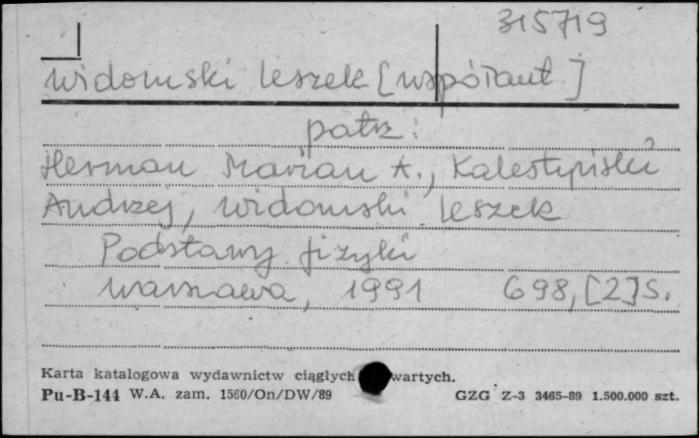 315719
Widomski Leszek [współaut]
patrz:
Herman Marian A., Kalestyński
Andrzej, Widomski Leszek
Podstawy fizyki
Warszawa, 1991 698, [2] s.
Karta katalogowa wydawnictw ciągłych wartych.
Pu-B-144 W.A. zam. 1560/On/DW/89 GZG Z-3 3465-89 1.500.000 szt.